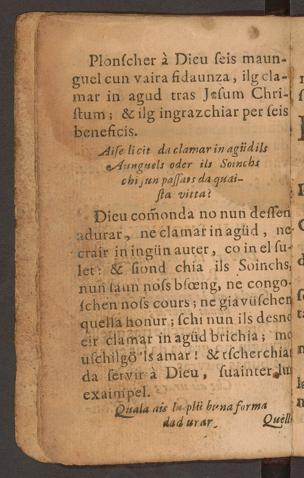 Plonscher à Dieu seis maun-
guel cun vaira fidaunza, ilg cla-
mar in agud tras Jesum Chri-
stum; & ilg ingrazchiar per seis
beneficis.
Aise licit da clamar in agüd ils
Aunguels oder ils Soinchs
chi sun passats da quai-
sta vitta?
Dieu comonda no nun dessen
adurar, ne clamar in agüd, ne
crair in ingün auter, co in el su-
let: & siond chia ils Soinchs,
nun haun noss bsœng, ne congo-
schen noss cours; ne giavüschen
quella honur; schi nun ils desne
eir clamar in agüd brichia; mo
uschilgö 'ls amar! & tscherchiar
da servir à Dieu, suainter lur
exaimpel.
Quala ais la plü buna forma
dad urar.
Quell